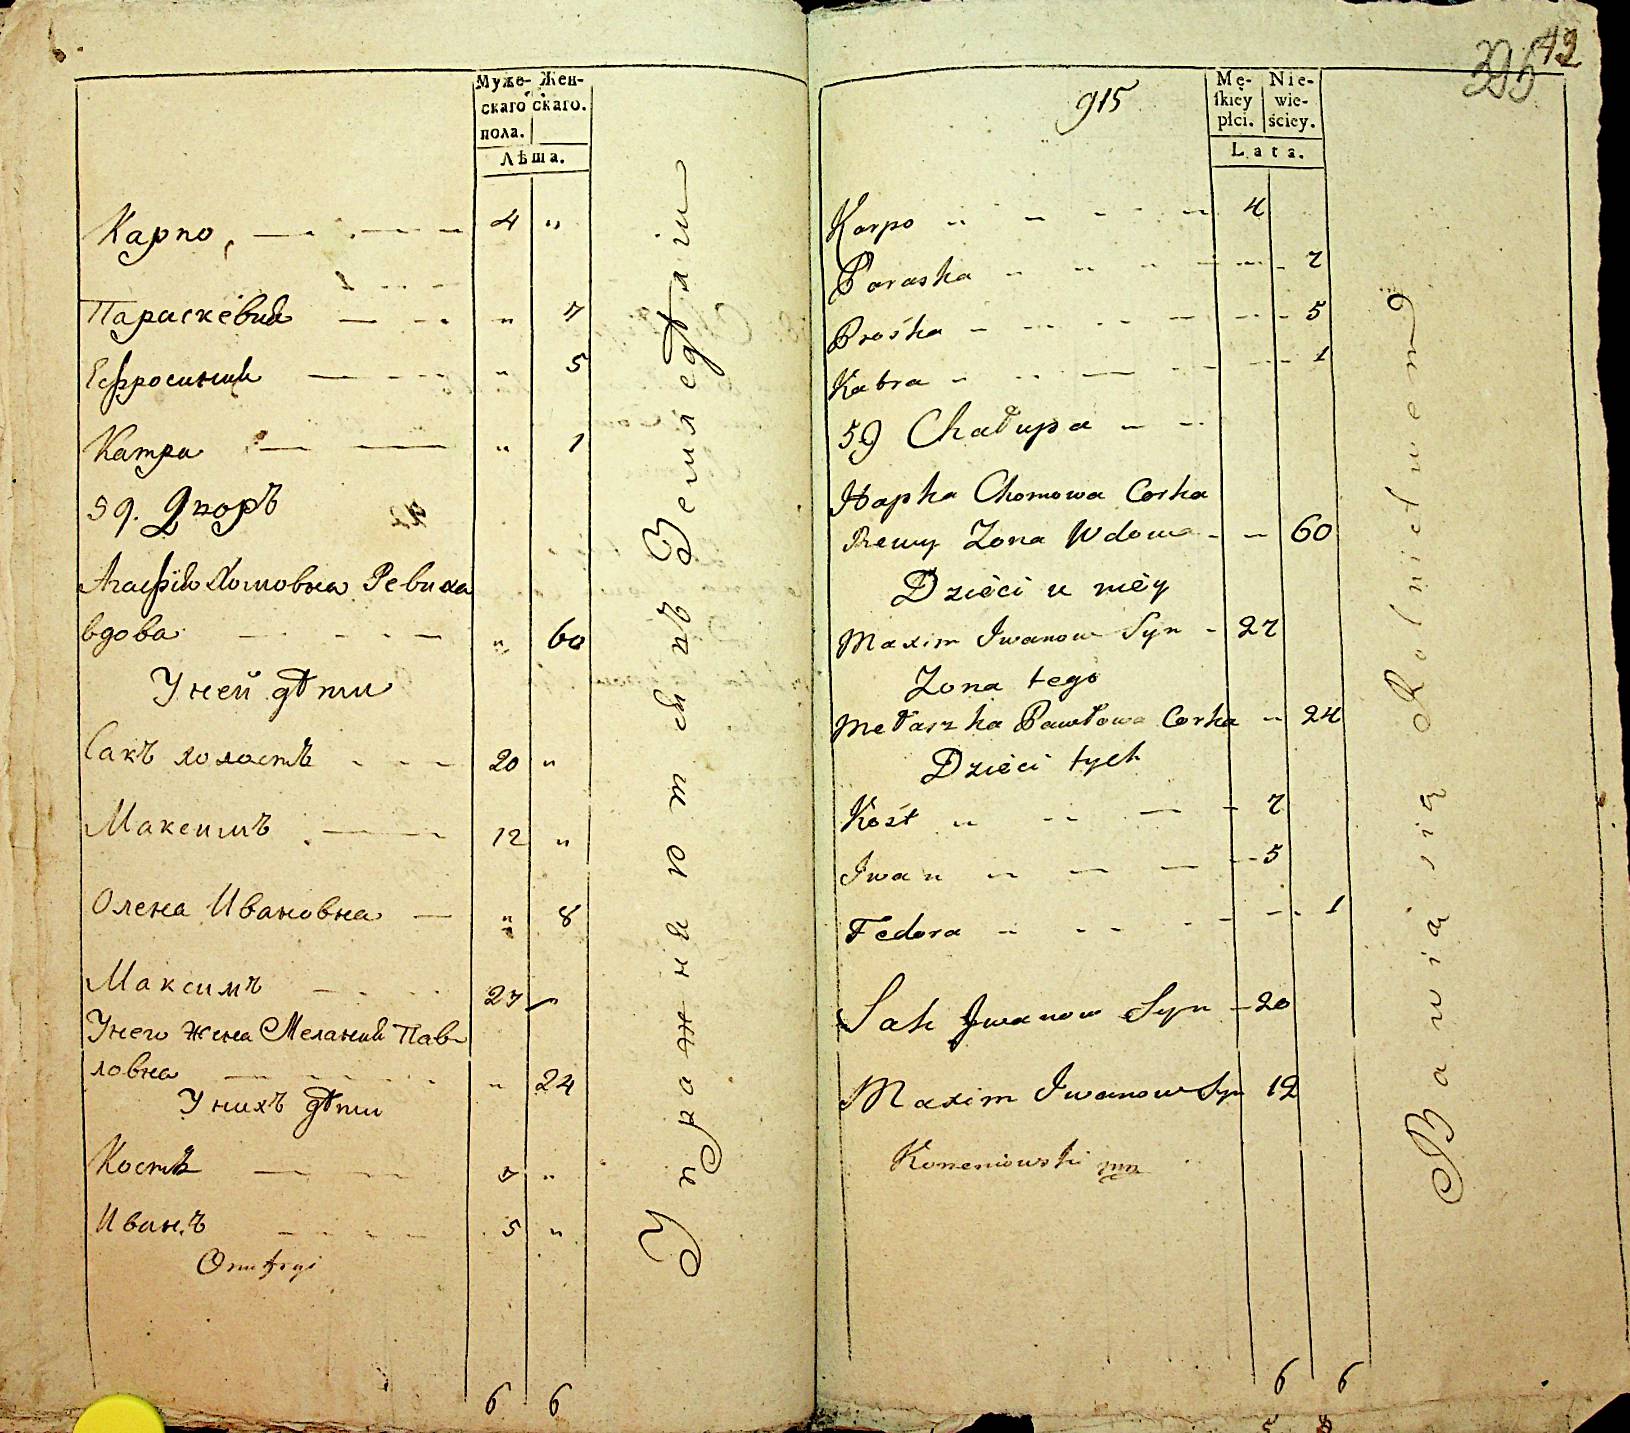 Муже- Жен-
скаго скаго.
пола.
Лѣта.
Карпо, 4 "
Параскевия " 7
Ефросиния " 5
Катра " 1
59. Дворъ
Агафия Хомовна Ревиха
вдова " 60
У ней дѣти
Сакъ холостъ 20 "
Максимъ 12 "
Олена Ивановна " 8
Максимъ 27
У него жена Мелания Пав-
ловна " 24
У нихъ дѣти
Костя 7 "
Иванъ 5 "
6 6
Упражняются въ Земледѣлии
42
395
915
Mę- Nie-
skiey wie-
płci. ściey.
Lata.
Karpo 4
Paraska 7
Prośka 5
Katra 1
59 Chałupa
Hapka Chomowa Corka
Rewy Zona Wdowa 60
Dzieci u niéy
Maxim Iwanow Syn 27
Zona tego
Mełaszka Pawłowa Corka 24
Dzieci tych
Kośt 7
Iwan 5
Fedora 1
Sak Iwanow Syn 20
Maxim Iwanow Syn 12
6 6
Bawią się Rolnictwem